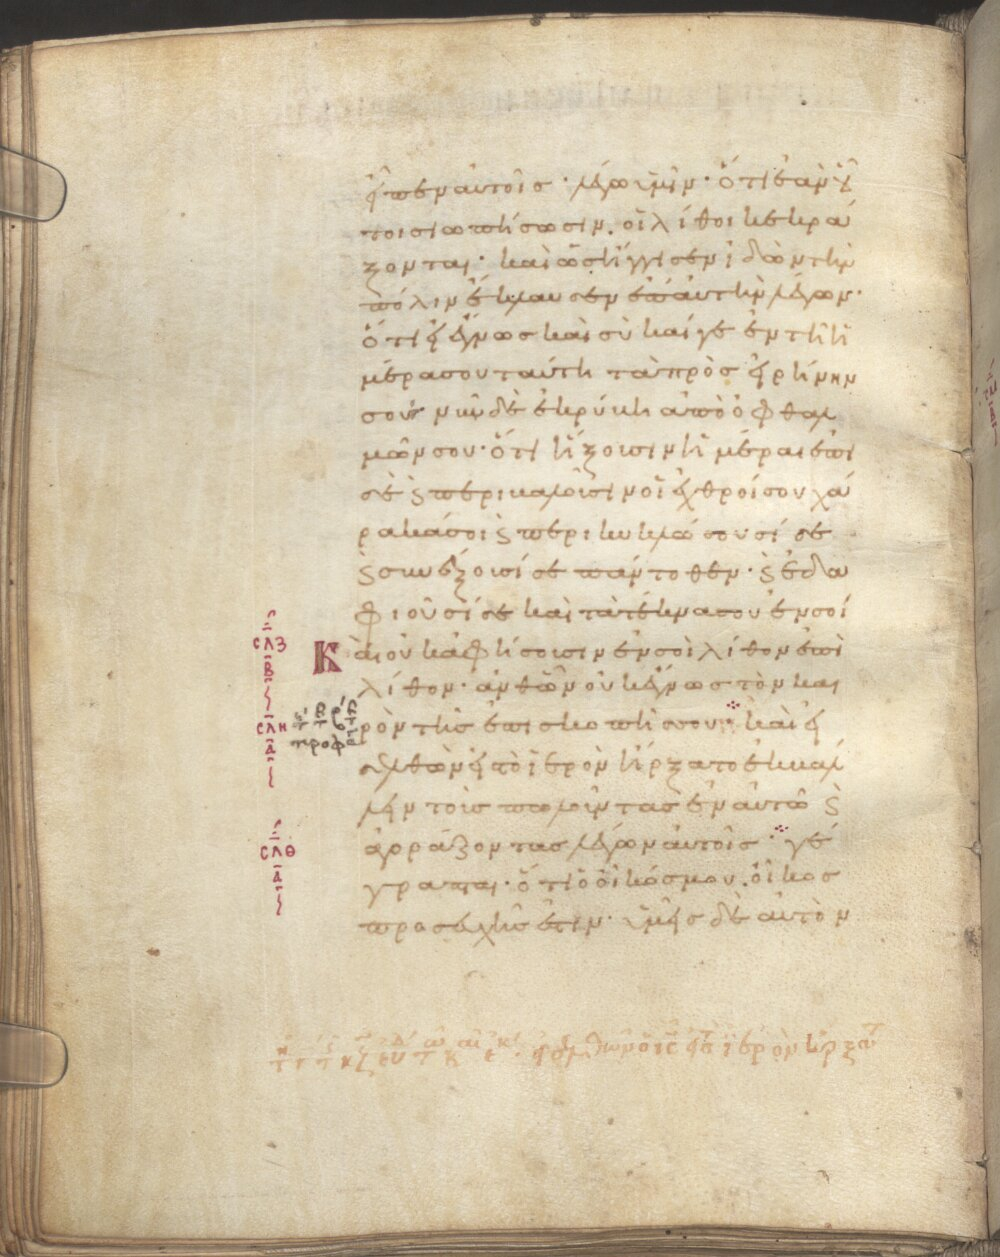 εἶπεν αὐτοῖς· λέγω ὑμῖν· ὅτι ἐὰν οὗ
τοι σιωπήσωσιν. οἱ λίθοι κεκρά
ξονται· καὶ ὡς ἤγγισεν ἰδὼν τὴν
πόλιν ἔκλαυσεν ἐπ' αὐτὴν λέγων·
ὅτι εἰ ἔγνως καὶ σὺ καί γε ἐν τῇ ἡ
μέρα σου ταύτη τὰ πρὸς εἰρήνην
σου· νῦν δὲ ἐκρύβη ἀπὸ ὀφθαλ
μῶν σου· ὅτι ἥξουσιν ἡμέραι ἐπὶ
σὲ ϗ περικαλοῦσιν οἱ ἐχθροί σου χά
ρακά σοι ϗ περικυκλώσουσί σε
ϗ συνέξουσί σε πάντοθεν· ϗ ἐδα
φιοῦσί σε καὶ τὰ τέκνα σου ἐν σοί
Καὶ οὐκ ἀφήσουσιν ἐν σοὶ λίθον ἐπὶ
λίθον· ἀνθ' ὧν οὐκ ἔγνως τὸν και
ρὸν τῆς ἐπισκοπῆς σου· καὶ εἰ
σελθὼν εἰς τὸ ἱερὸν ἤρξατο ἐκβάλ
λειν τοὺς πωλοῦντας ἐν αὐτῷ ϗ
ἀγοράζοντας λέγων αὐτοῖς· γέ
γραπται· ὅτι ὁ οἶκός μου. οἶκος
προσευχῆς ἐστιν· ὑμεῖς δὲ αὐτὸν
σλζ
β
σλη
α
σλθ
α
προφ